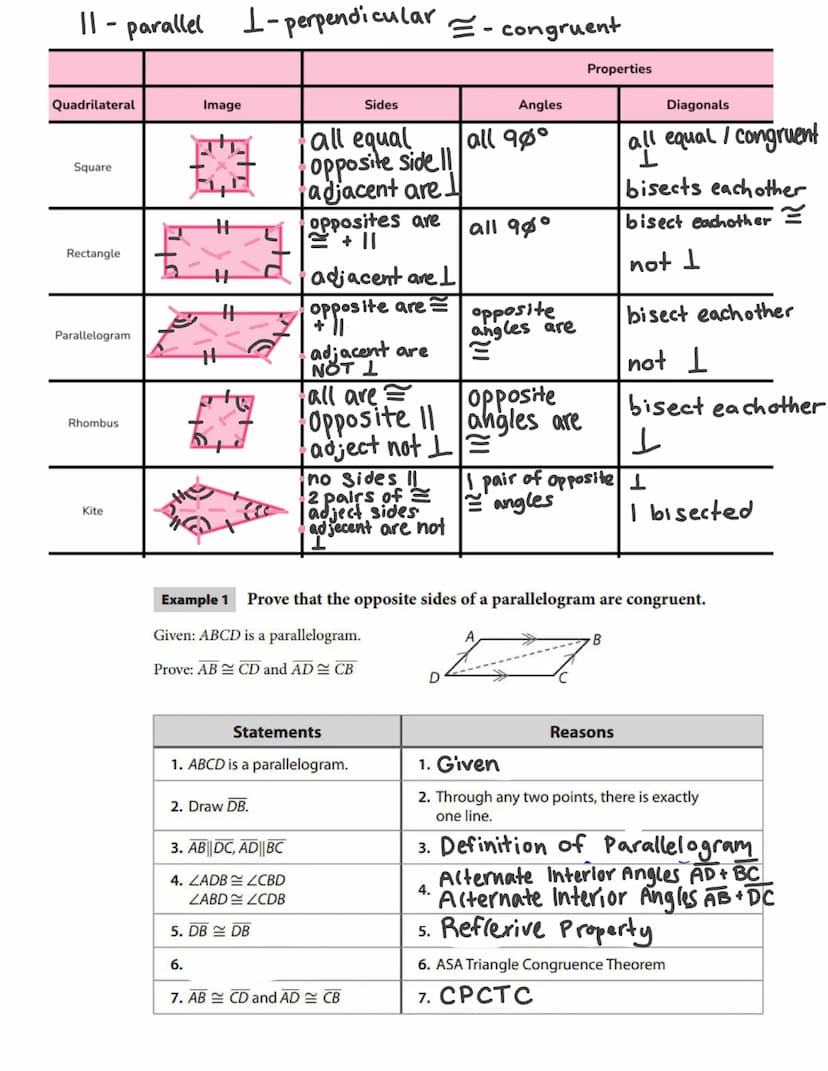 || - parallel ⊥ - perpendicular ≅ - congruent
Properties
Quadrilateral Image Sides Angles Diagonals
Square
all equal
opposite side ||
adjacent are ⊥
all 90°
all equal / congruent
⊥
bisects eachother
Rectangle
opposites are
≅ + ||
adjacent are ⊥
all 90°
bisect eachother ≅
not ⊥
Parallelogram
opposite are ≅
+ ||
adjacent are
NOT ⊥
opposite
angles are
≅
bisect eachother
not ⊥
Rhombus
all are ≅
opposite ||
adject not ⊥
opposite
angles are
≅
bisect eachother
⊥
Kite
no sides ||
2 pairs of ≅
adject sides
adjecent are not
⊥
1 pair of opposite
≅ angles
⊥
1 bisected
Example 1 Prove that the opposite sides of a parallelogram are congruent.
Given: ABCD is a parallelogram.
Prove: A̅B̅ ≅ C̅D̅ and A̅D̅ ≅ C̅B̅
A
B
D
C
Statements Reasons
1. ABCD is a parallelogram. 1. Given
2. Draw D̅B̅. 2. Through any two points, there is exactly
one line.
3. A̅B̅||D̅C̅, A̅D̅||B̅C̅ 3. Definition of Parallelogram
4. ∠ADB ≅ ∠CBD
∠ABD ≅ ∠CDB
4. Alternate Interior Angles A̅D̅ + B̅C̅
Alternate Interior Angles A̅B̅ + D̅C̅
5. D̅B̅ ≅ D̅B̅ 5. Reflexive Property
6. 6. ASA Triangle Congruence Theorem
7. A̅B̅ ≅ C̅D̅ and A̅D̅ ≅ C̅B̅ 7. CPCTC